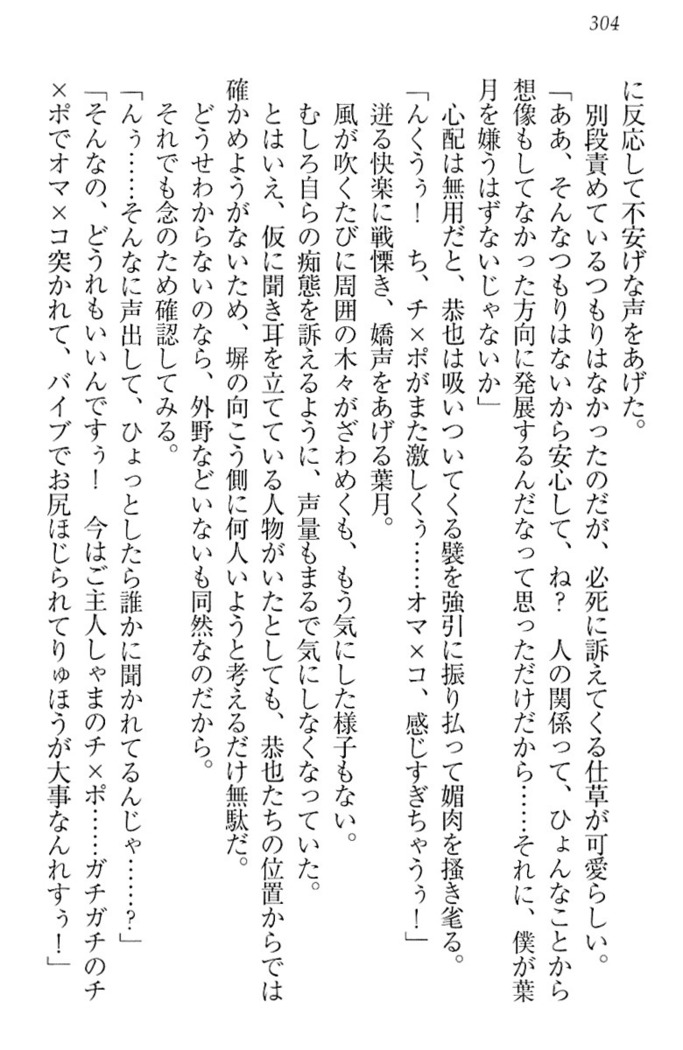 304
に反応して不安げな声をあげた。
別段責めているつもりはなかったのだが、必死に訴えてくる仕草が可愛らしい。
「ああ、そんなつもりはないから安心して、ね？　人の関係って、ひょんなことから
想像もしてなかった方向に発展するんだなって思っただけだから……それに、僕が葉
月を嫌うはずないじゃないか」
心配は無用だと、恭也は吸いついてくる襞を強引に振り払って媚肉を掻き毟る。
「んくうぅ！　ち、チ×ポがまた激しくぅ……オマ×コ、感じすぎちゃうぅ！」
迸る快楽に戦慄き、嬌声をあげる葉月。
風が吹くたびに周囲の木々がざわめくも、もう気にした様子もない。
むしろ自らの痴態を訴えるように、声量もまるで気にしなくなっていた。
とはいえ、仮に聞き耳を立てている人物がいたとしても、恭也たちの位置からでは
確かめようがないため、塀の向こう側に何人いようと考えるだけ無駄だ。
どうせわからないのなら、外野などいないも同然なのだから。
それでも念のため確認してみる。
「んぅ……そんなに声出して、ひょっとしたら誰かに聞かれてるんじゃ……？」
「そんなの、どうれもいいんですぅ！　今はご主人しゃまのチ×ポ……ガチガチのチ
×ポでオマ×コ突かれて、バイブでお尻ほじられてりゅほうが大事なんれすぅ！」